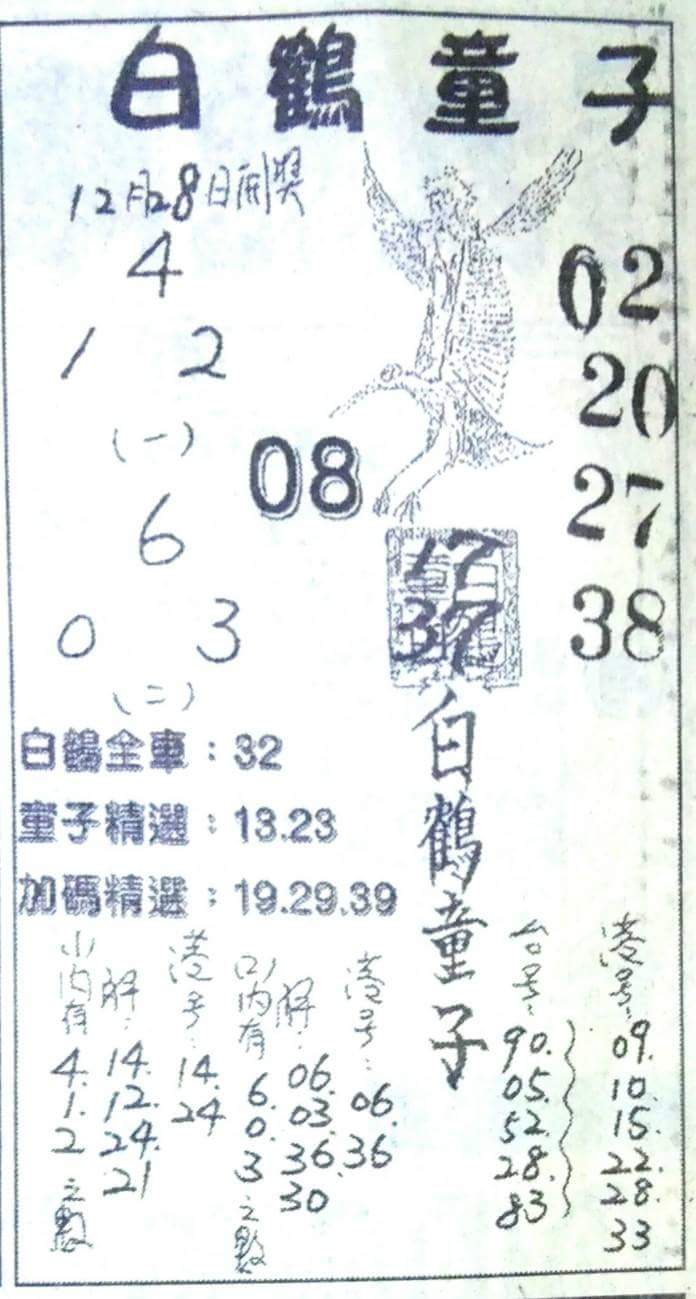 白鶴童子
12月28日開獎
4
1 2
(一)
6
0 3
(二)
08
02
20
27
38
17
37
白鶴童子
白鶴全車：32
童子精選：13.23
加碼精選：19.29.39
(一)內有
4.
1.
2
之數
解：
14.
12.
24.
21
港号：
14.
24
(二)內有
6.
0.
3
之數
解：
06.
03.
36.
30
港号：
06.
36
台号：
90.
05.
52.
28.
83
港号：
09.
10.
15.
22.
28.
33